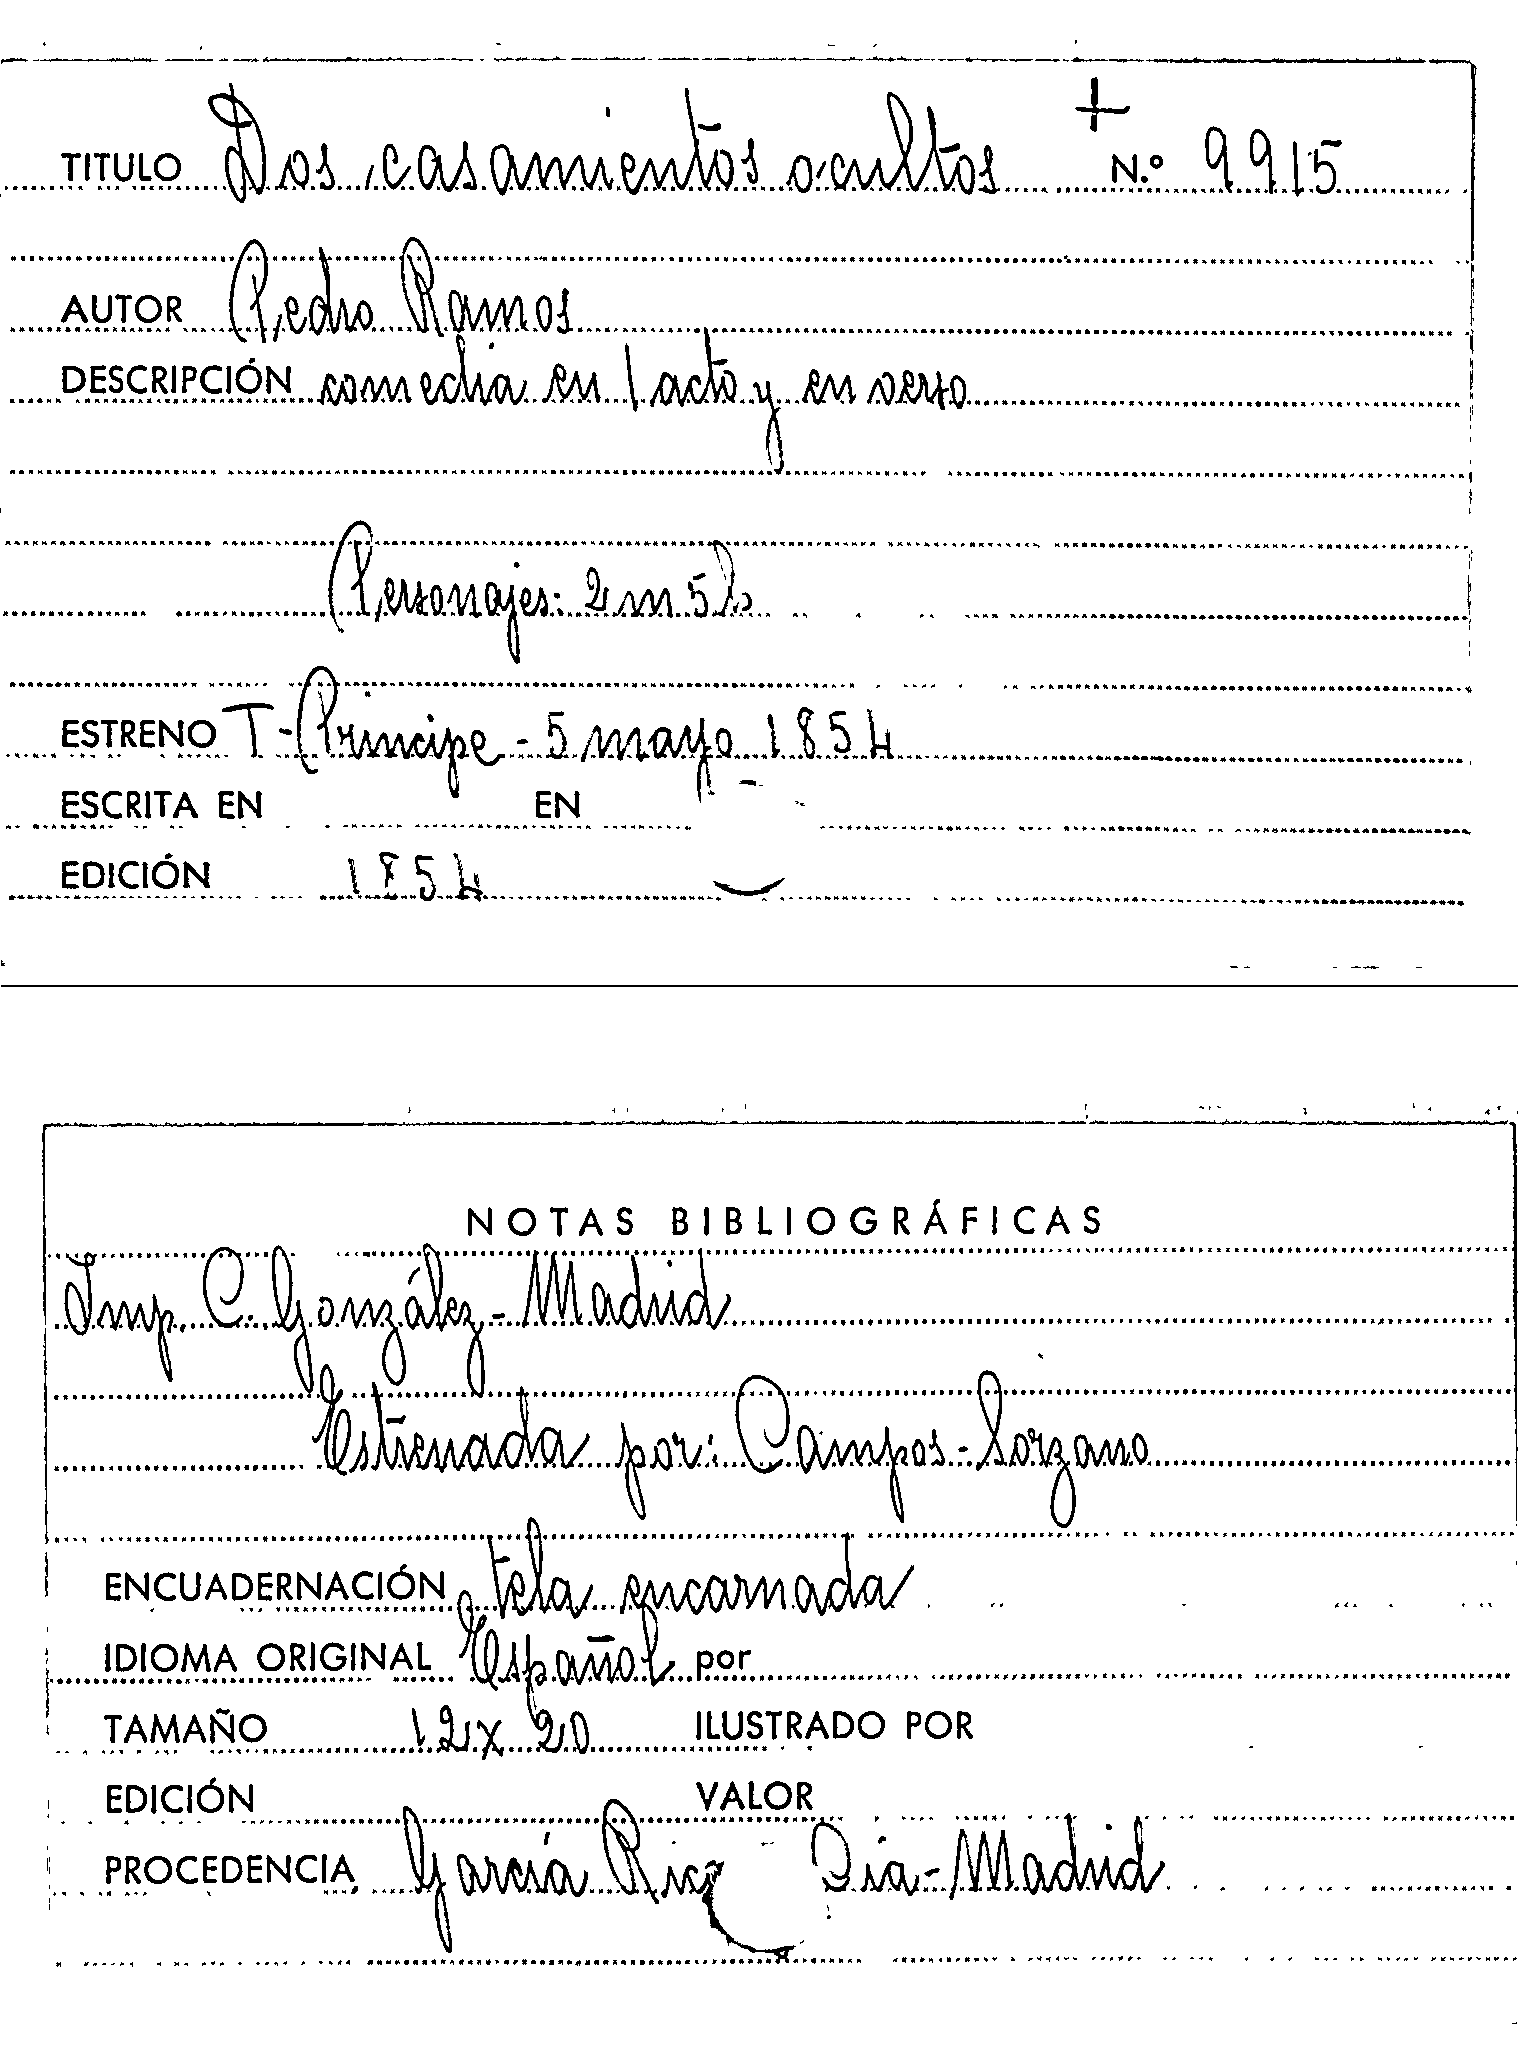 TITULO Dos casamientos ocultos + N.º 9915
AUTOR Pedro Ramos
DESCRIPCIÓN comedia en 1 acto y en verso
Personajes: 2 m 5 h
ESTRENO T-Principe - 5 mayo 1854
ESCRITA EN EN
EDICIÓN 1854
NOTAS BIBLIOGRÁFICAS
Imp. C. González - Madrid
Estrenada por: Campos - Sorzano
ENCUADERNACIÓN tela encarnada
IDIOMA ORIGINAL Español por
TAMAÑO 12 x 20 ILUSTRADO POR
EDICIÓN VALOR
PROCEDENCIA García Rico - Madrid